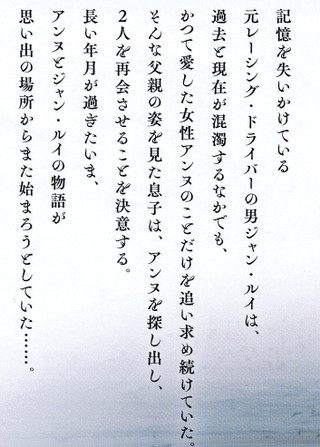 記憶を失いかけている
元レーシング・ドライバーの男ジャン・ルイは、
過去と現在が混濁するなかでも、
かつて愛した女性アンヌのことだけを追い求め続けていた。
そんな父親の姿を見た息子は、アンヌを探し出し、
2人を再会させることを決意する。
長い年月が過ぎたいま、
アンヌとジャン・ルイの物語が
思い出の場所からまた始まろうとしていた……。